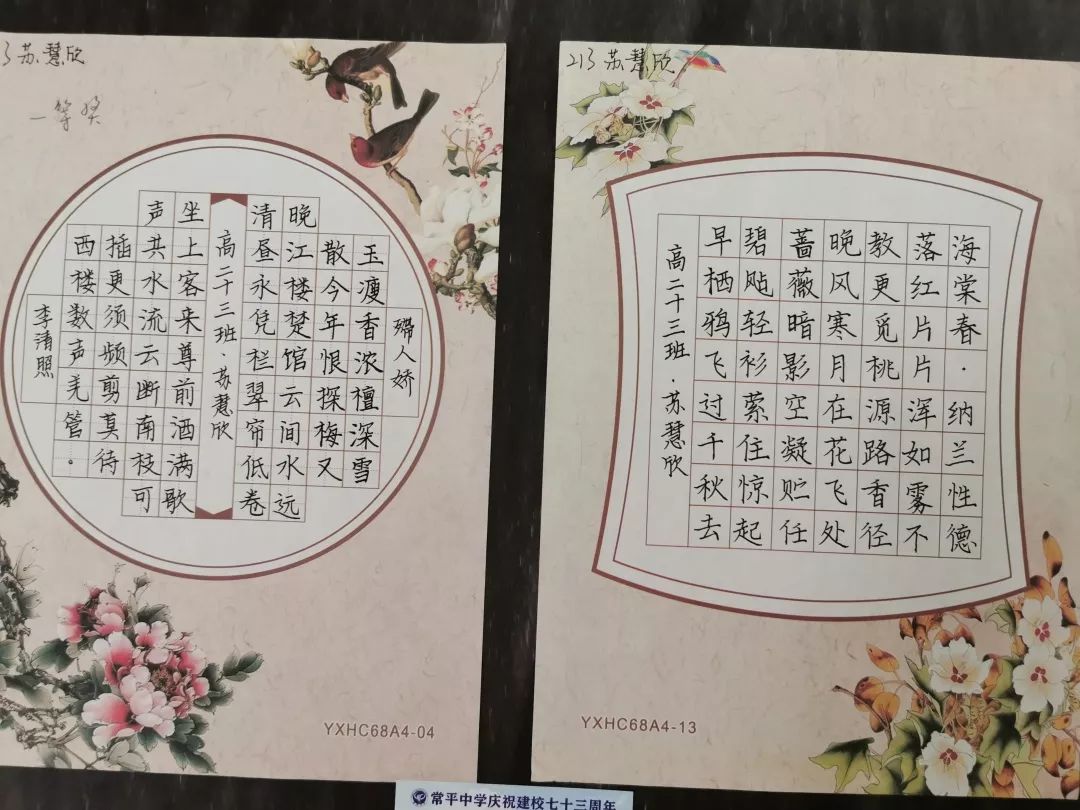 3苏慧欣
一等奖
殢人娇
玉瘦香浓檀深雪
散今年恨探梅又
晚江楼楚馆云间水远
清昼永凭栏翠帘低卷
高二十三班·苏慧欣
坐上客来尊前酒满歌
声共水流云断南枝可
插更须频剪莫待
西楼数声羌管。
李清照
YXHC68A4-04
213苏慧欣
海棠春·纳兰性德
落红片片浑如雾不
教更觅桃源路香径
晚风寒月在花飞处
蔷薇暗影空凝贮任
碧飐轻衫萦住惊起
早栖鸦飞过千秋去
高二十三班·苏慧欣
YXHC68A4-13
常平中学庆祝建校七十三周年